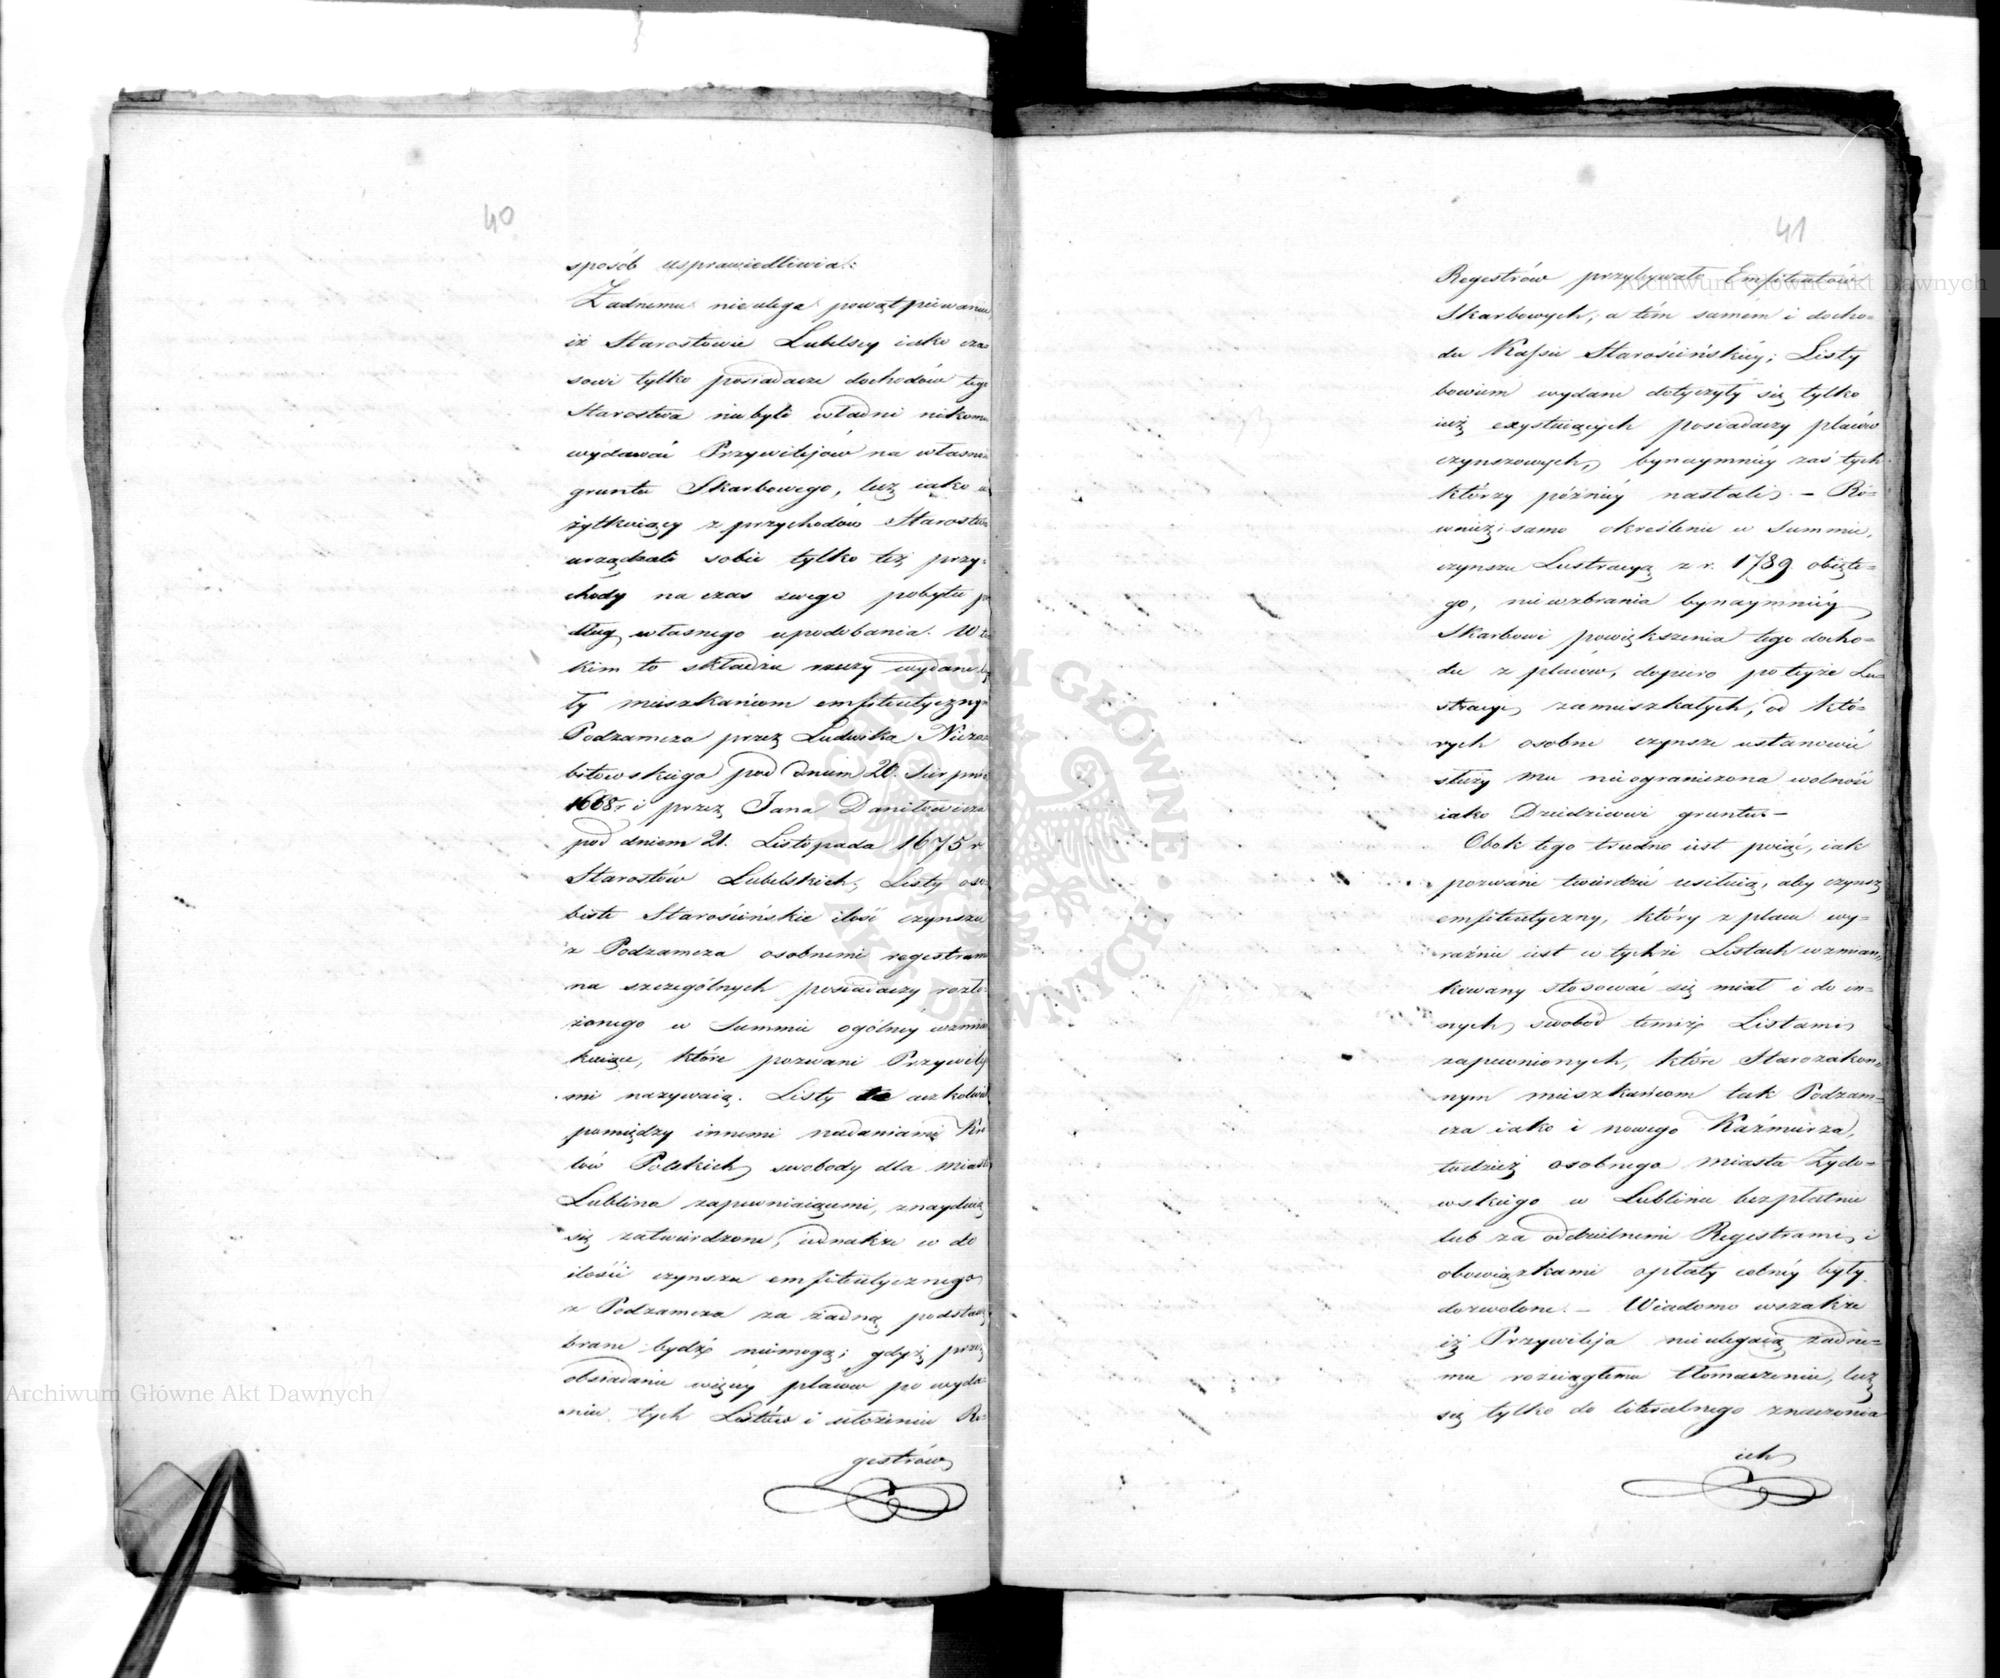 40
sposób usprawiedliwia:
Żadnemu nieulega powątpiewaniu
iż Starostowie Lubelscy iako cza-
sowi tylko posiadacze dochodów tego
Starostwa niebyli władni nikomu
wydawać Przywilejów na własno
gruntu Skarbowego, lecz iako u
żytkuiący z przychodów Starostwa
urządzali sobie tylko też przy-
chody na czas swego pobytu po
dług własnego upodobania. W ta
kim to składzie rzeczy wydane by
ły mieszkańcom emfiteutycznym
Podzamcza przez Ludwika Niezna
bitowskiego pod dniem 20. Sierpnia
1668 r i przez Jana Daniłowicza
pod dniem 21. Listopada 1675 r
Starostów Lubelskich, Listy oso-
biste Starościńskie ilość czynszu
z Podzamcza osobnemi regestrami
na szczególnych posiadaczy rozło-
żonego w Summie ogólnéy wzmian
kuiące, które pozwani Przywileja
mi nazywaią. Listy te aczkolwiek
pomiędzy innemi nadaniami Kró
lów Polskich swobody dla miasta
Lublina zapewniaiącemi, znayduią
się zatwierdzone, iednakże w do
ilości czynszu emfiteutycznego
z Podzamcza za żadną podstawę
brane bydź niemogą; gdyż przez
obsiadanie więcéy placów po wyda-
niu tych Listów i ułożeniu Re-
gestrów
41
Regestrów przybywało Emfiteutów
Skarbowych; a tém samém i docho-
du Kassie Starościńskiéy; Listy
bowiem wydane dotyczyły się tylko
iuż exystuiących posiadaczy placów
czynszowych, bynaymniéy zaś tych
którzy późniéy nastali. – Ró-
wnież samo określenie w Summie,
czynszu Lustracyą z r. 1789 obięte-
go, niewzbrania bynaymniéy
Skarbowi powiększenia tego docho-
du z placów, dopiero po teyże Lu-
stracyi zamieszkałych, od któ-
rych osobne czynsze ustanowić
służy mu nieograniczona wolność
iako Dziedzicowi gruntu. –
Obok tego trudno iest poiąć, iak
pozwani twierdzić usiłuią, aby czynsz
emfiteutyczny, który z placu wy-
raźnie iest w tychże Listach wzmian-
kowany stosować się miał i do in-
nych swobod temiż Listami
zapewnionych, które Starozakon-
nym mieszkańcom tak Podzam-
cza iako i nowego Kaźmierza,
tudzież osobnego miasta Żydo-
wskiego w Lublinie bezpłatnie
lub za oddzielnemi Regestrami i
obowiązkami opłaty celnéy były
dozwolone. – Wiadomo wszakże
iż Przywileja nieulegaią żadne-
mu rozciągłemu tłomaczeniu, lecz
się tylko do literalnego znaczenia
ich
Archiwum Główne Akt Dawnych
Archiwum Główne Akt Dawnych
ARCHIWUM GŁÓWNE AKT DAWNYCH